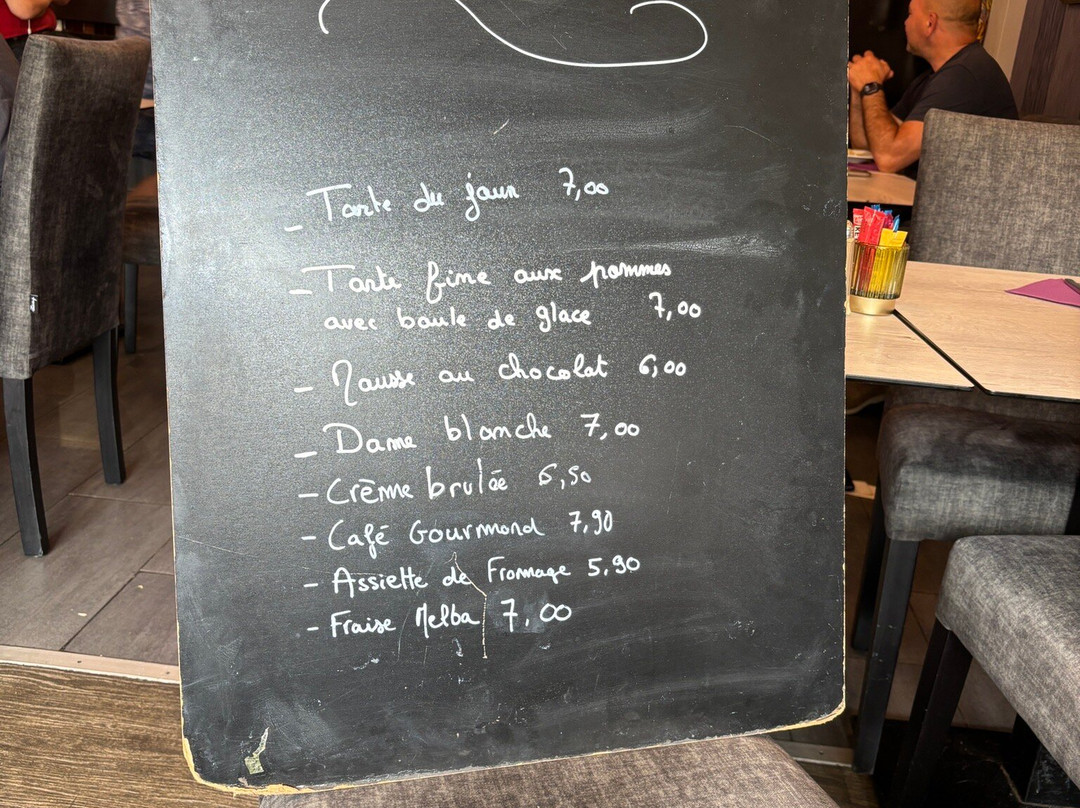 - Tarte du jour 7,00
- Tarte fine aux pommes
avec boule de glace 7,00
- Mousse au chocolat 6,00
- Dame blanche 7,00
- Crème brulée 6,50
- Café Gourmand 7,90
- Assiette de Fromage 5,90
- Fraise Melba 7,00